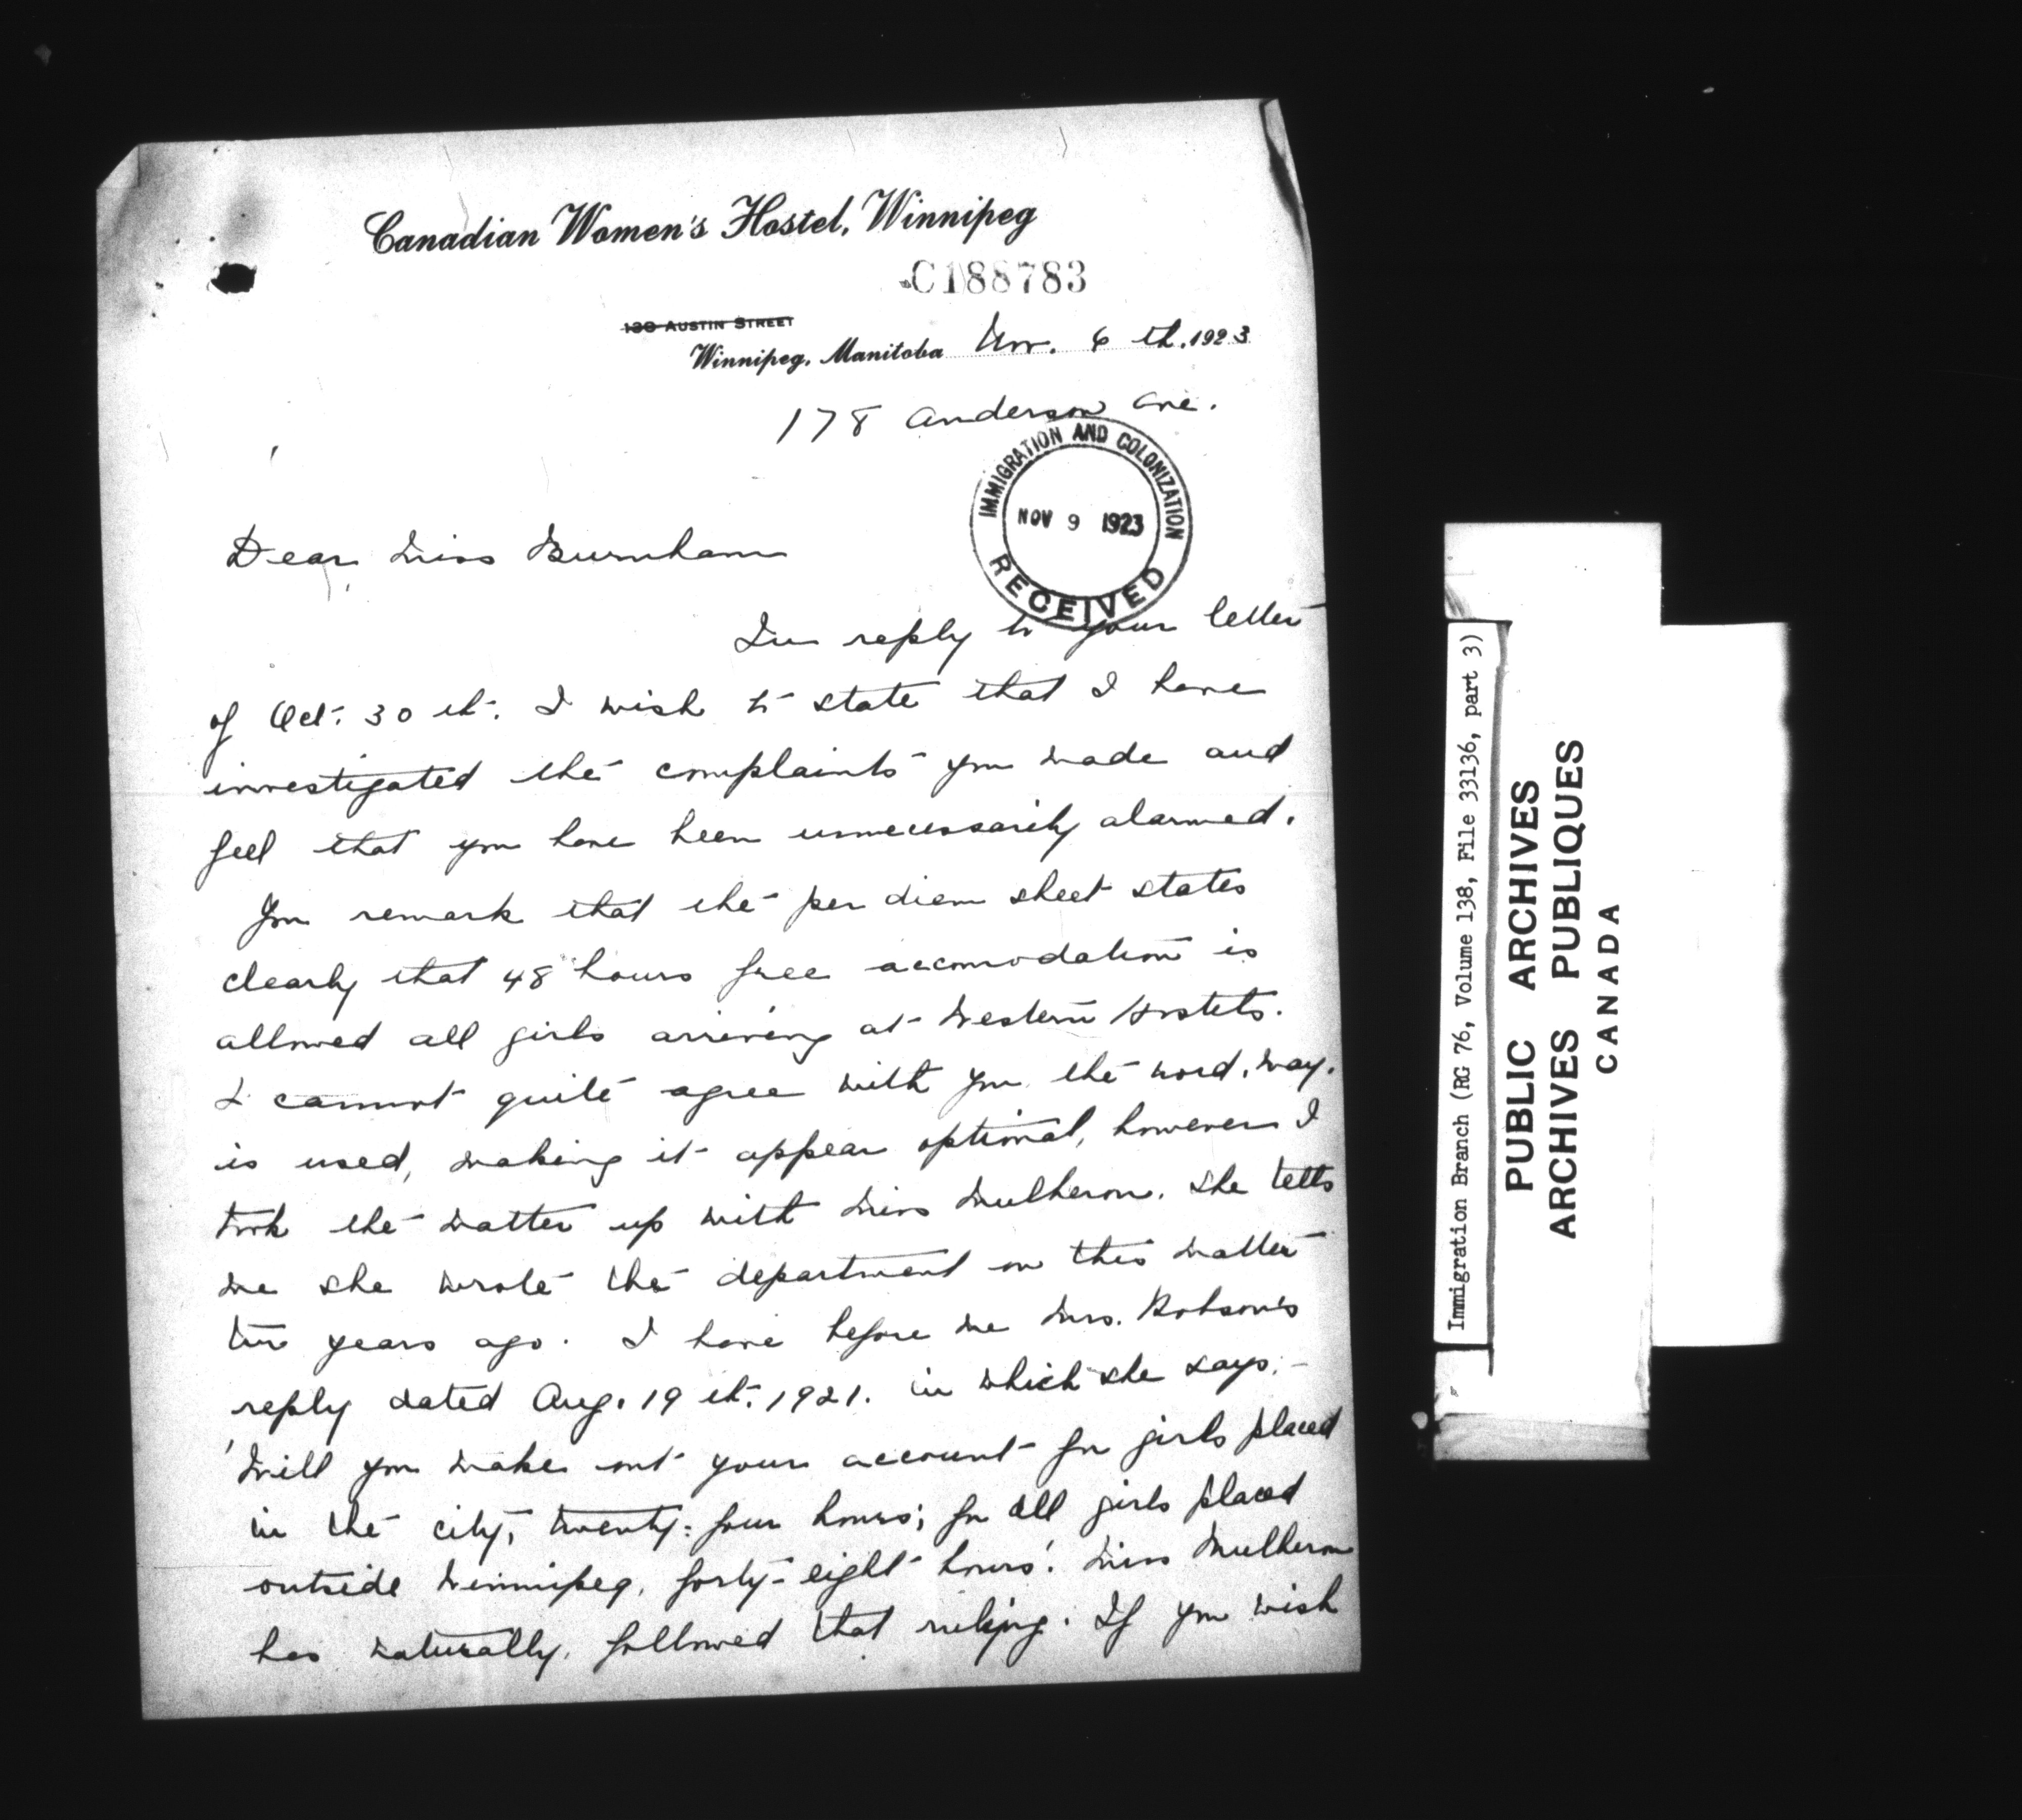 Canadian Women's Hostel, Winnipeg
C188783
130 AUSTIN STREET
Winnipeg, Manitoba Nov. 6 th. 1923
178 Anderson Ave.
IMMIGRATION AND COLONIZATION
NOV 9 1923
RECEIVED
Dear Miss Burnham
In reply to your letter
of Oct. 30 th. I wish to state that I have
investigated the complaints you made and
feel that you have been unnecessarily alarmed.
You remark that the per diem sheet states
clearly that 48 hours free accomodation is
allowed all girls arriving at Western Hostels.
I cannot quite agree with you the word, may.
is used, making it appear optional, however I
took the matter up with Miss Mulheron. She tells
me she wrote the department on this matter
two years ago. I have before me Mrs. Robson's
reply dated Aug. 19 th. 1921. in which she says, -
'Will you make out your account for girls placed
in the city, twenty-four hours; for all girls placed
outside Winnipeg, forty-eight hours'. Miss Mulheron
has naturally, followed that ruling. If you wish
Immigration Branch (RG 76, Volume 138, File 33136, part 3)
PUBLIC ARCHIVES
ARCHIVES PUBLIQUES
CANADA